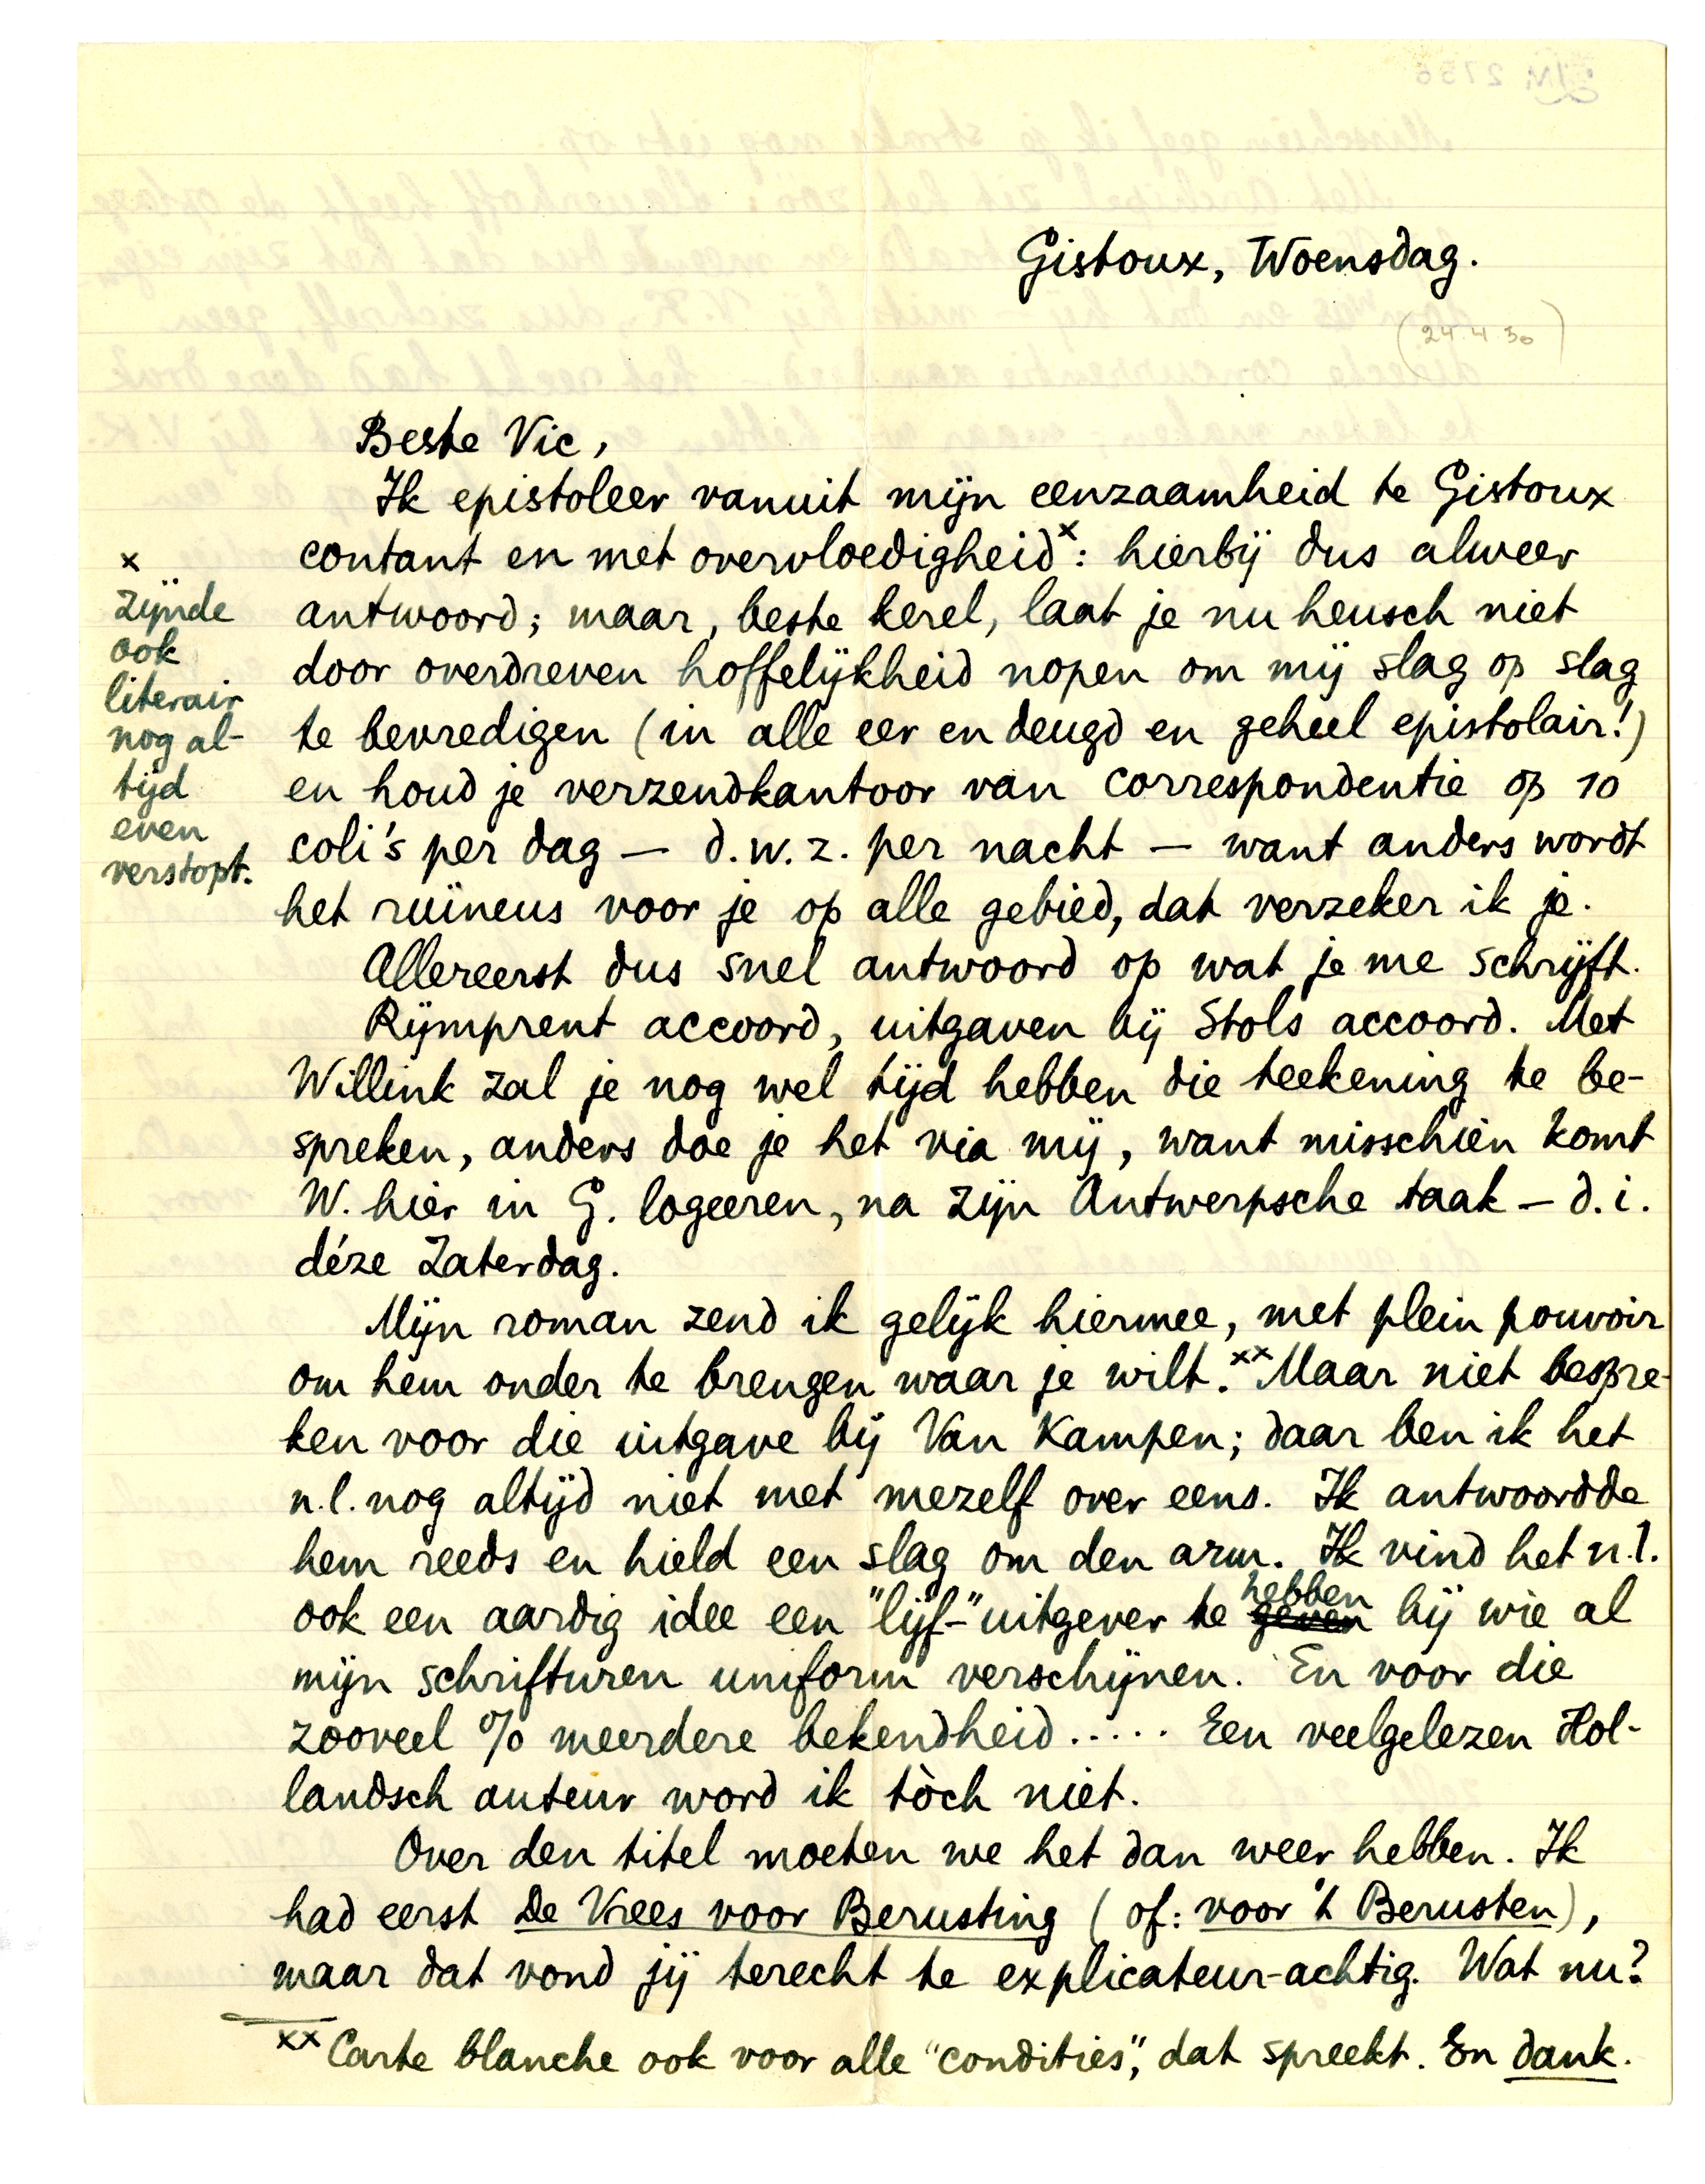 Gistoux, Woensdag.
(24.4.30)
Beste Vic,
Ik epistoleer vanuit mijn eenzaamheid te Gistoux
contant en met overvloedigheid x: hierbij dus alweer
antwoord; maar, beste kerel, laat je nu heusch niet
door overdreven hoffelijkheid nopen om mij slag op slag
te bevredigen (in alle eer en deugd en geheel epistolair!)
en houd je verzendkantoor van correspondentie op 10
coli's per dag — d.w.z. per nacht — want anders wordt
het ruïneus voor je op alle gebied, dat verzeker ik je.
x
zijnde
ook
literair
nog al-
tijd
even
verstopt.
Allereerst dus snel antwoord op wat je me schrijft.
Rijmprent accoord, uitgaven bij Stols accoord. Met
Willink zal je nog wel tijd hebben die teekening te be-
spreken, anders doe je het via mij, want misschien komt
W. hier in G. logeeren, na zijn Antwerpsche taak — d.i.
déze Zaterdag.
Mijn roman zend ik gelijk hiermee, met plein pouvoir
om hem onder te brengen waar je wilt. xx Maar niet bespre-
ken voor die uitgave bij Van Kampen; daar ben ik het
n.l. nog altijd niet met mezelf over eens. Ik antwoordde
hem reeds en hield een slag om den arm. Ik vind het n.l.
ook een aardig idee een "lijf-"uitgever te geven hebben bij wie al
mijn schrifturen uniform verschijnen. En voor die
zooveel % meerdere bekendheid..... Een veelgelezen Hol-
landsch auteur word ik tòch niet.
Over den titel moeten we het dan weer hebben. Ik
had eerst De Vrees voor Berusting (of: voor 't Berusten),
maar dat vond jij terecht te explicateur-achtig. Wat nu?
xx Carte blanche ook voor alle "condities", dat spreekt. En dank.